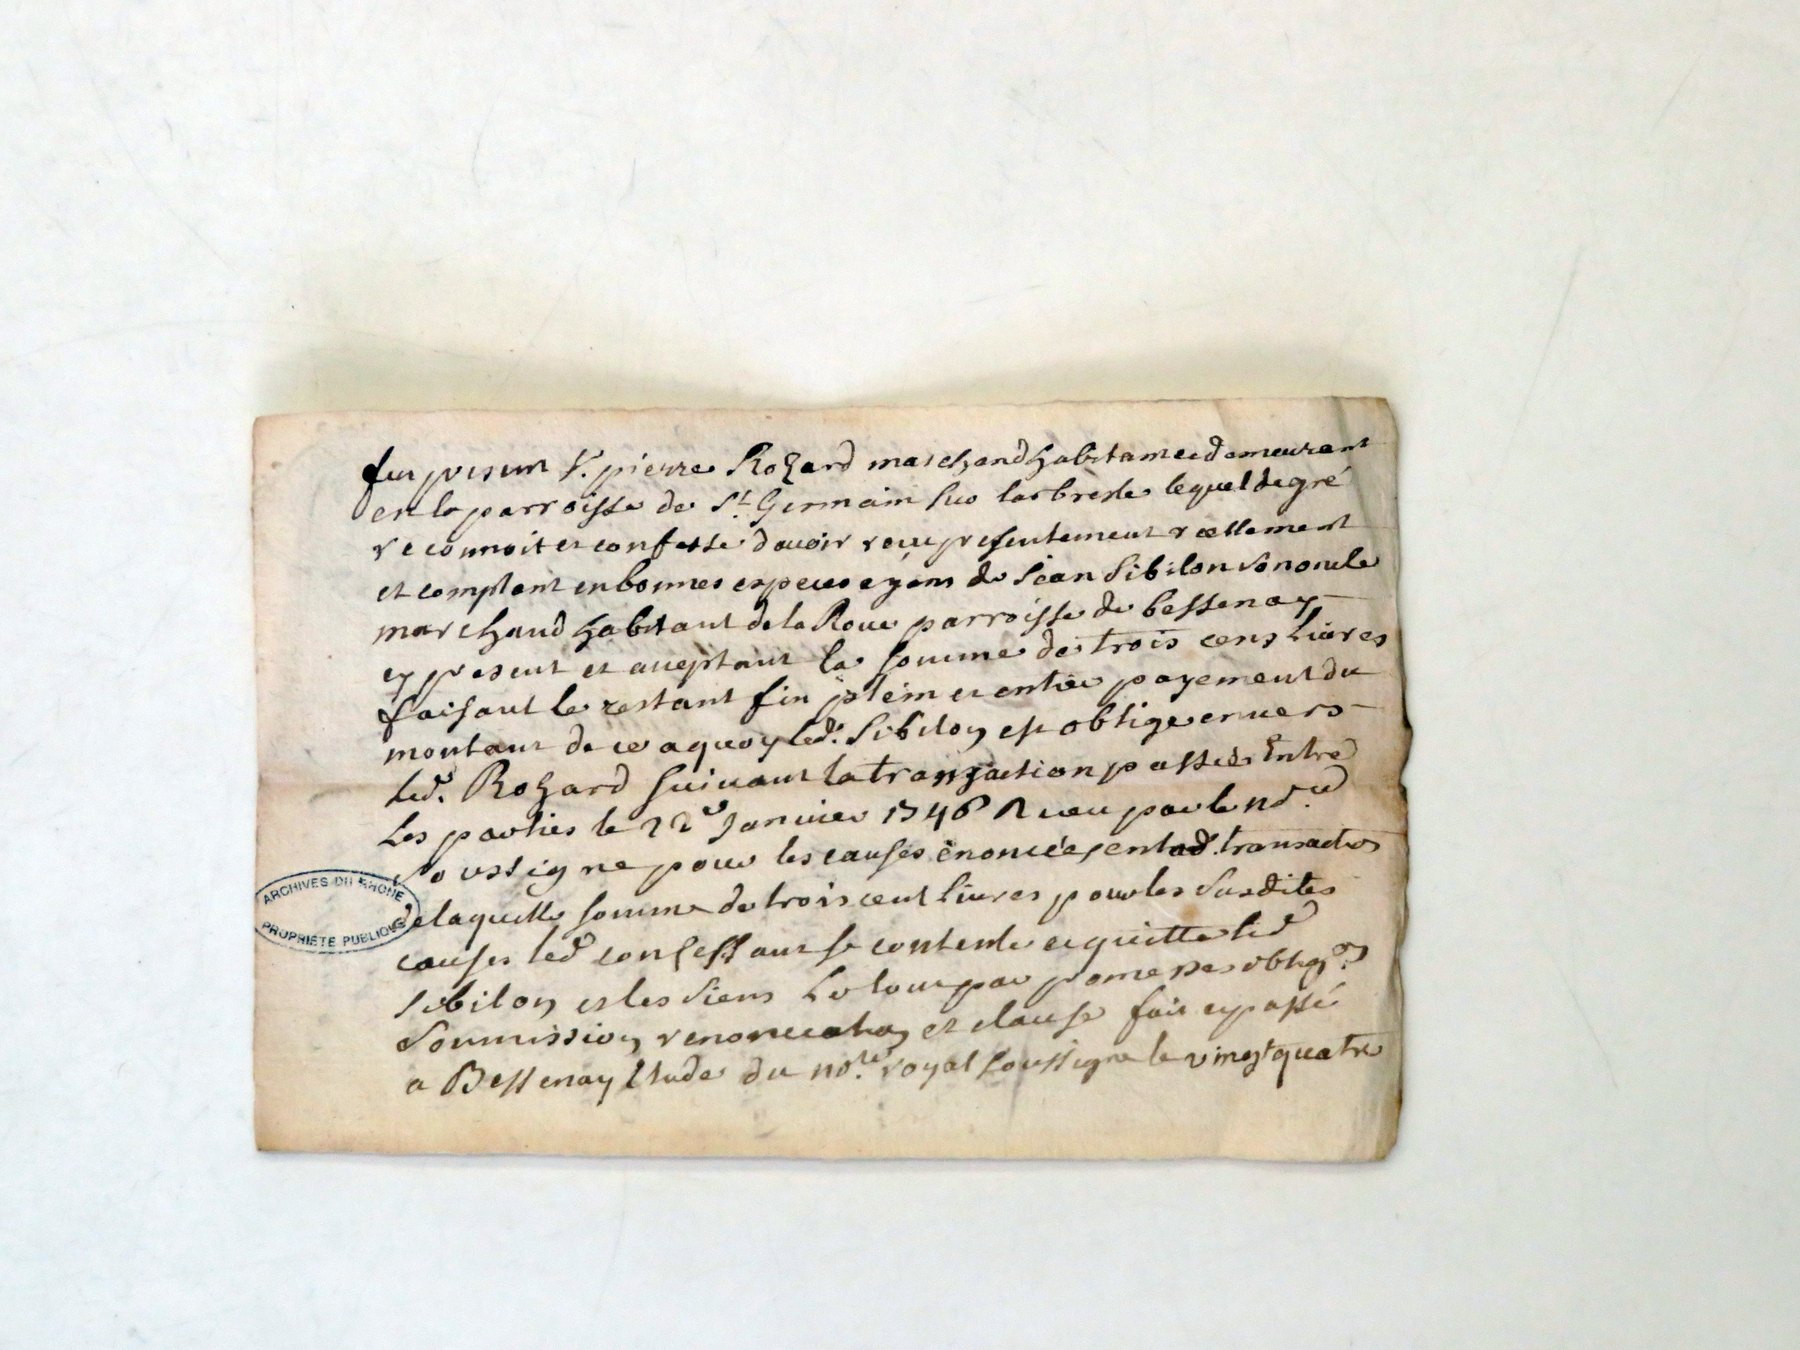 fut present Sr. pierre Rozard marchand habitant et demeurant
en la parroisse de St. Germain sur larbresle lequel de gré
reconnoit et confesse davoir reçu presentement reellement
et comptant en bonnes especes ayans de Jean Sibilon son oncle
marchand habitant de la Roue parroisse de bessenay
cy present et aceptant la somme de trois cens livres
faisant le restant fin plein et entier payement du
montant de ce aquoy led. Sibilon est obligé envers
led. Rozard suivant la transaction passée Entre
Les parties le 22e Janvier 1746 Recu par le no.re
soussigne pour les causes enoncées en lad. transaction
de laquelle somme de trois cent livres pour les susdites
causes led confessant se contente et quitte led
Sibilon et les siens Le tout par promesses oblig.on
soumission renonciation et clause fait et passé
a Bessenay Etude du no.re royal soussigne le vingt quatre
ARCHIVES DU RHONE
PROPRIETE PUBLIQUE